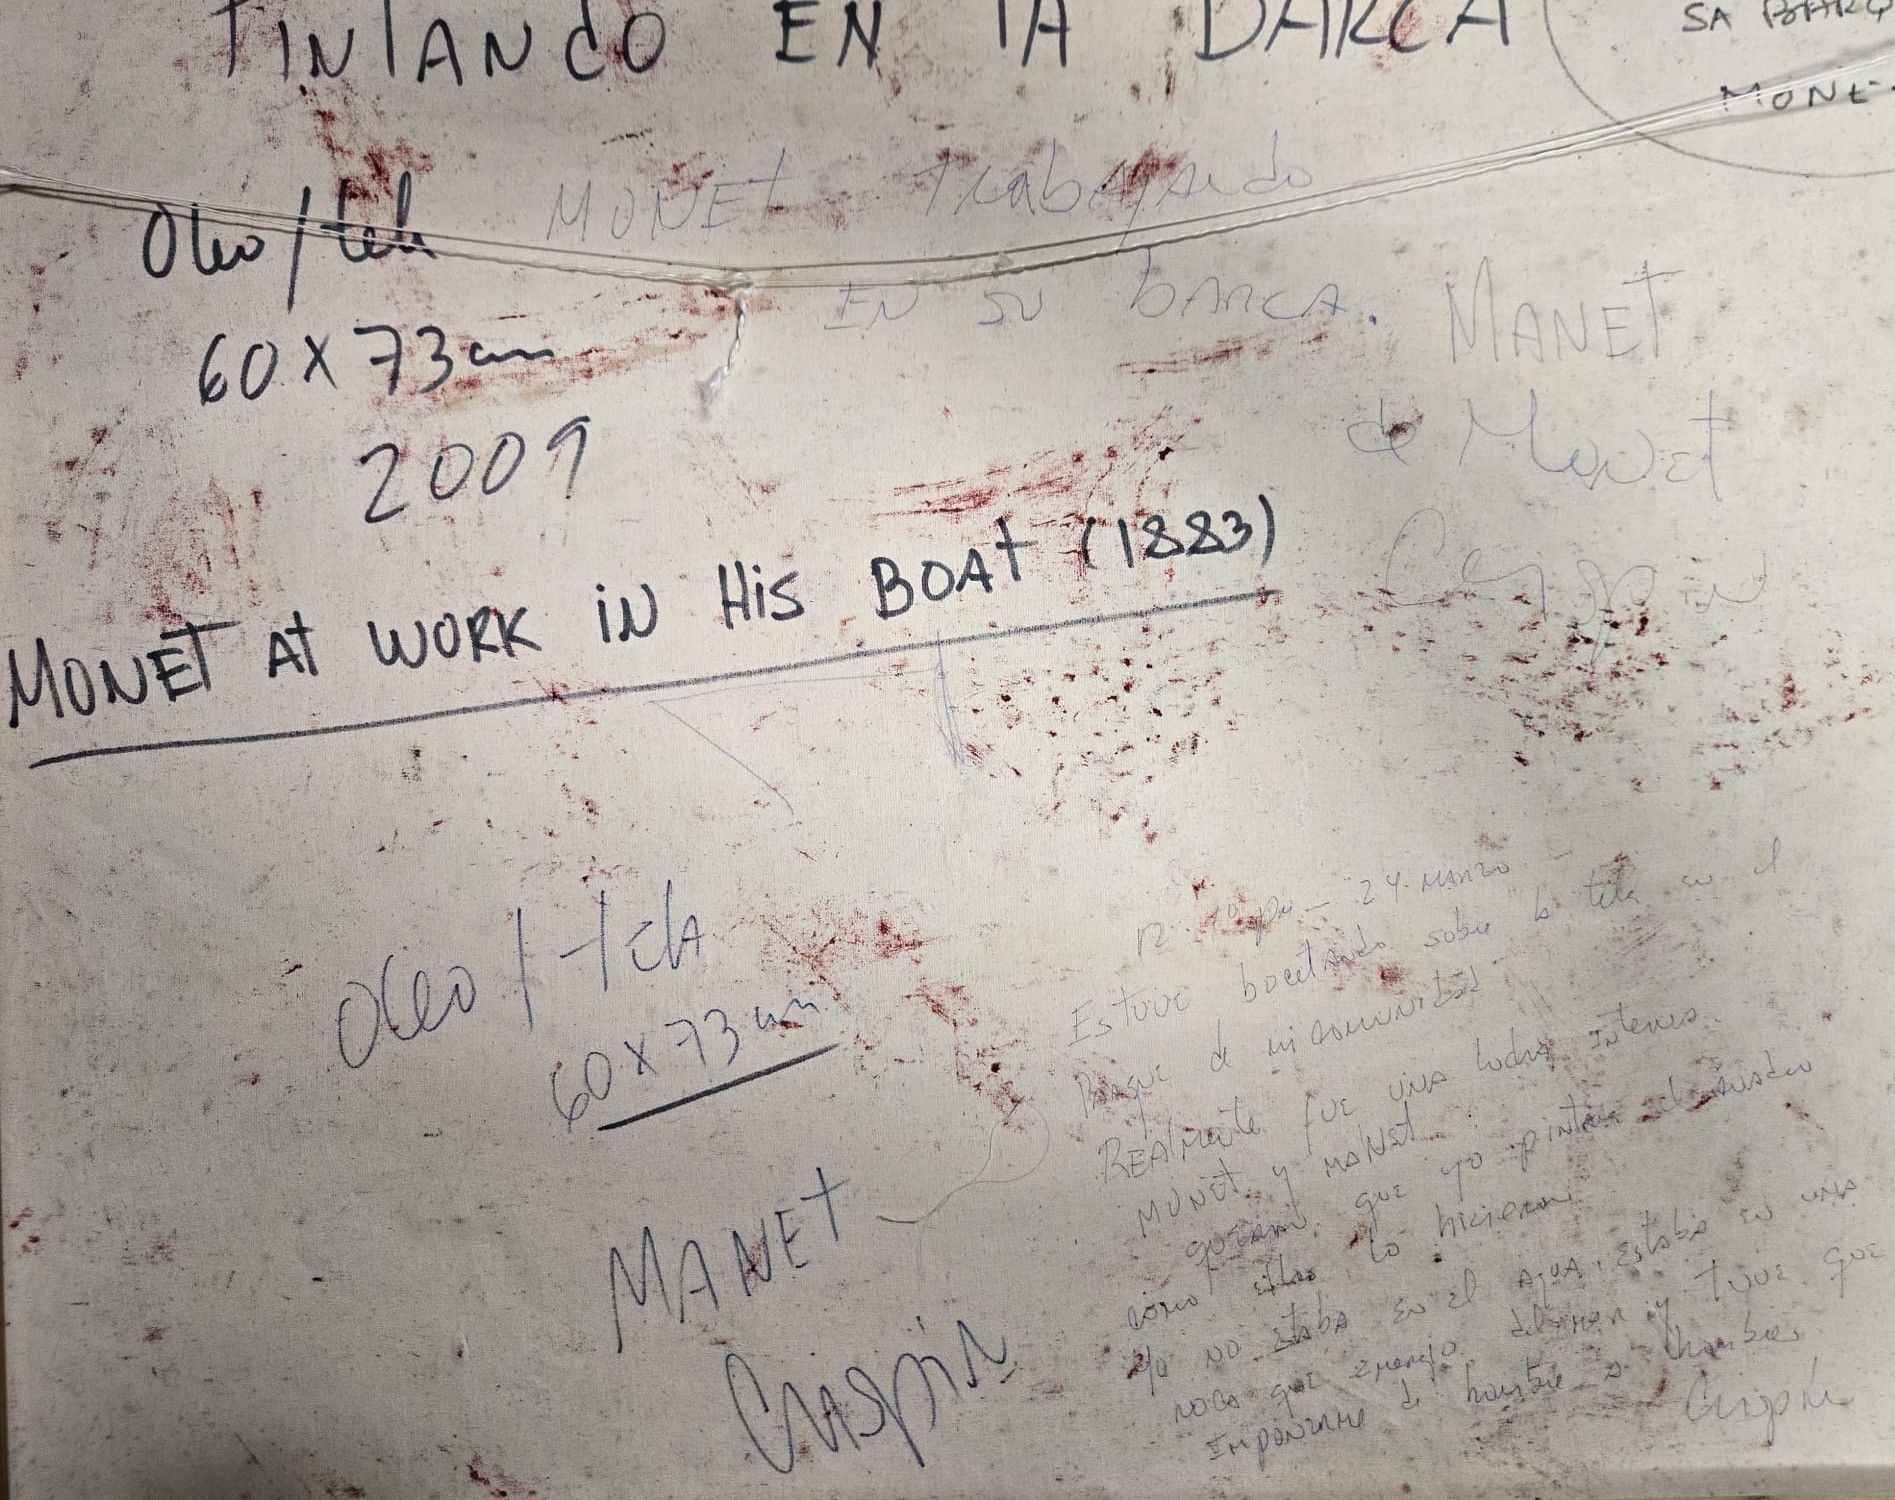 PINTANDO EN LA BARCA
SA BARQ
MONE
Oleo/tela
MONET trabajando
EN SU bARCA.
60 x 73 cm
MANET
de Monet
2009
Crispin
MONET At WORK iN HiS BOAt (1883)
24 MARZO
Estuve bocetando sobre la tela en el
Parque de mi comunidad
Oleo / tela
REAlmente fue una lucha Intensa.
60 x 73 cm
MONET y MANEt
querian que yo pintara el cuadro
como ellos lo hicieron
MANET
Yo no estaba en el AgUA, estaba en una
roca que emergio del mar y tuve que
Imponerme de hombre a hombres
Crispin
Crispin